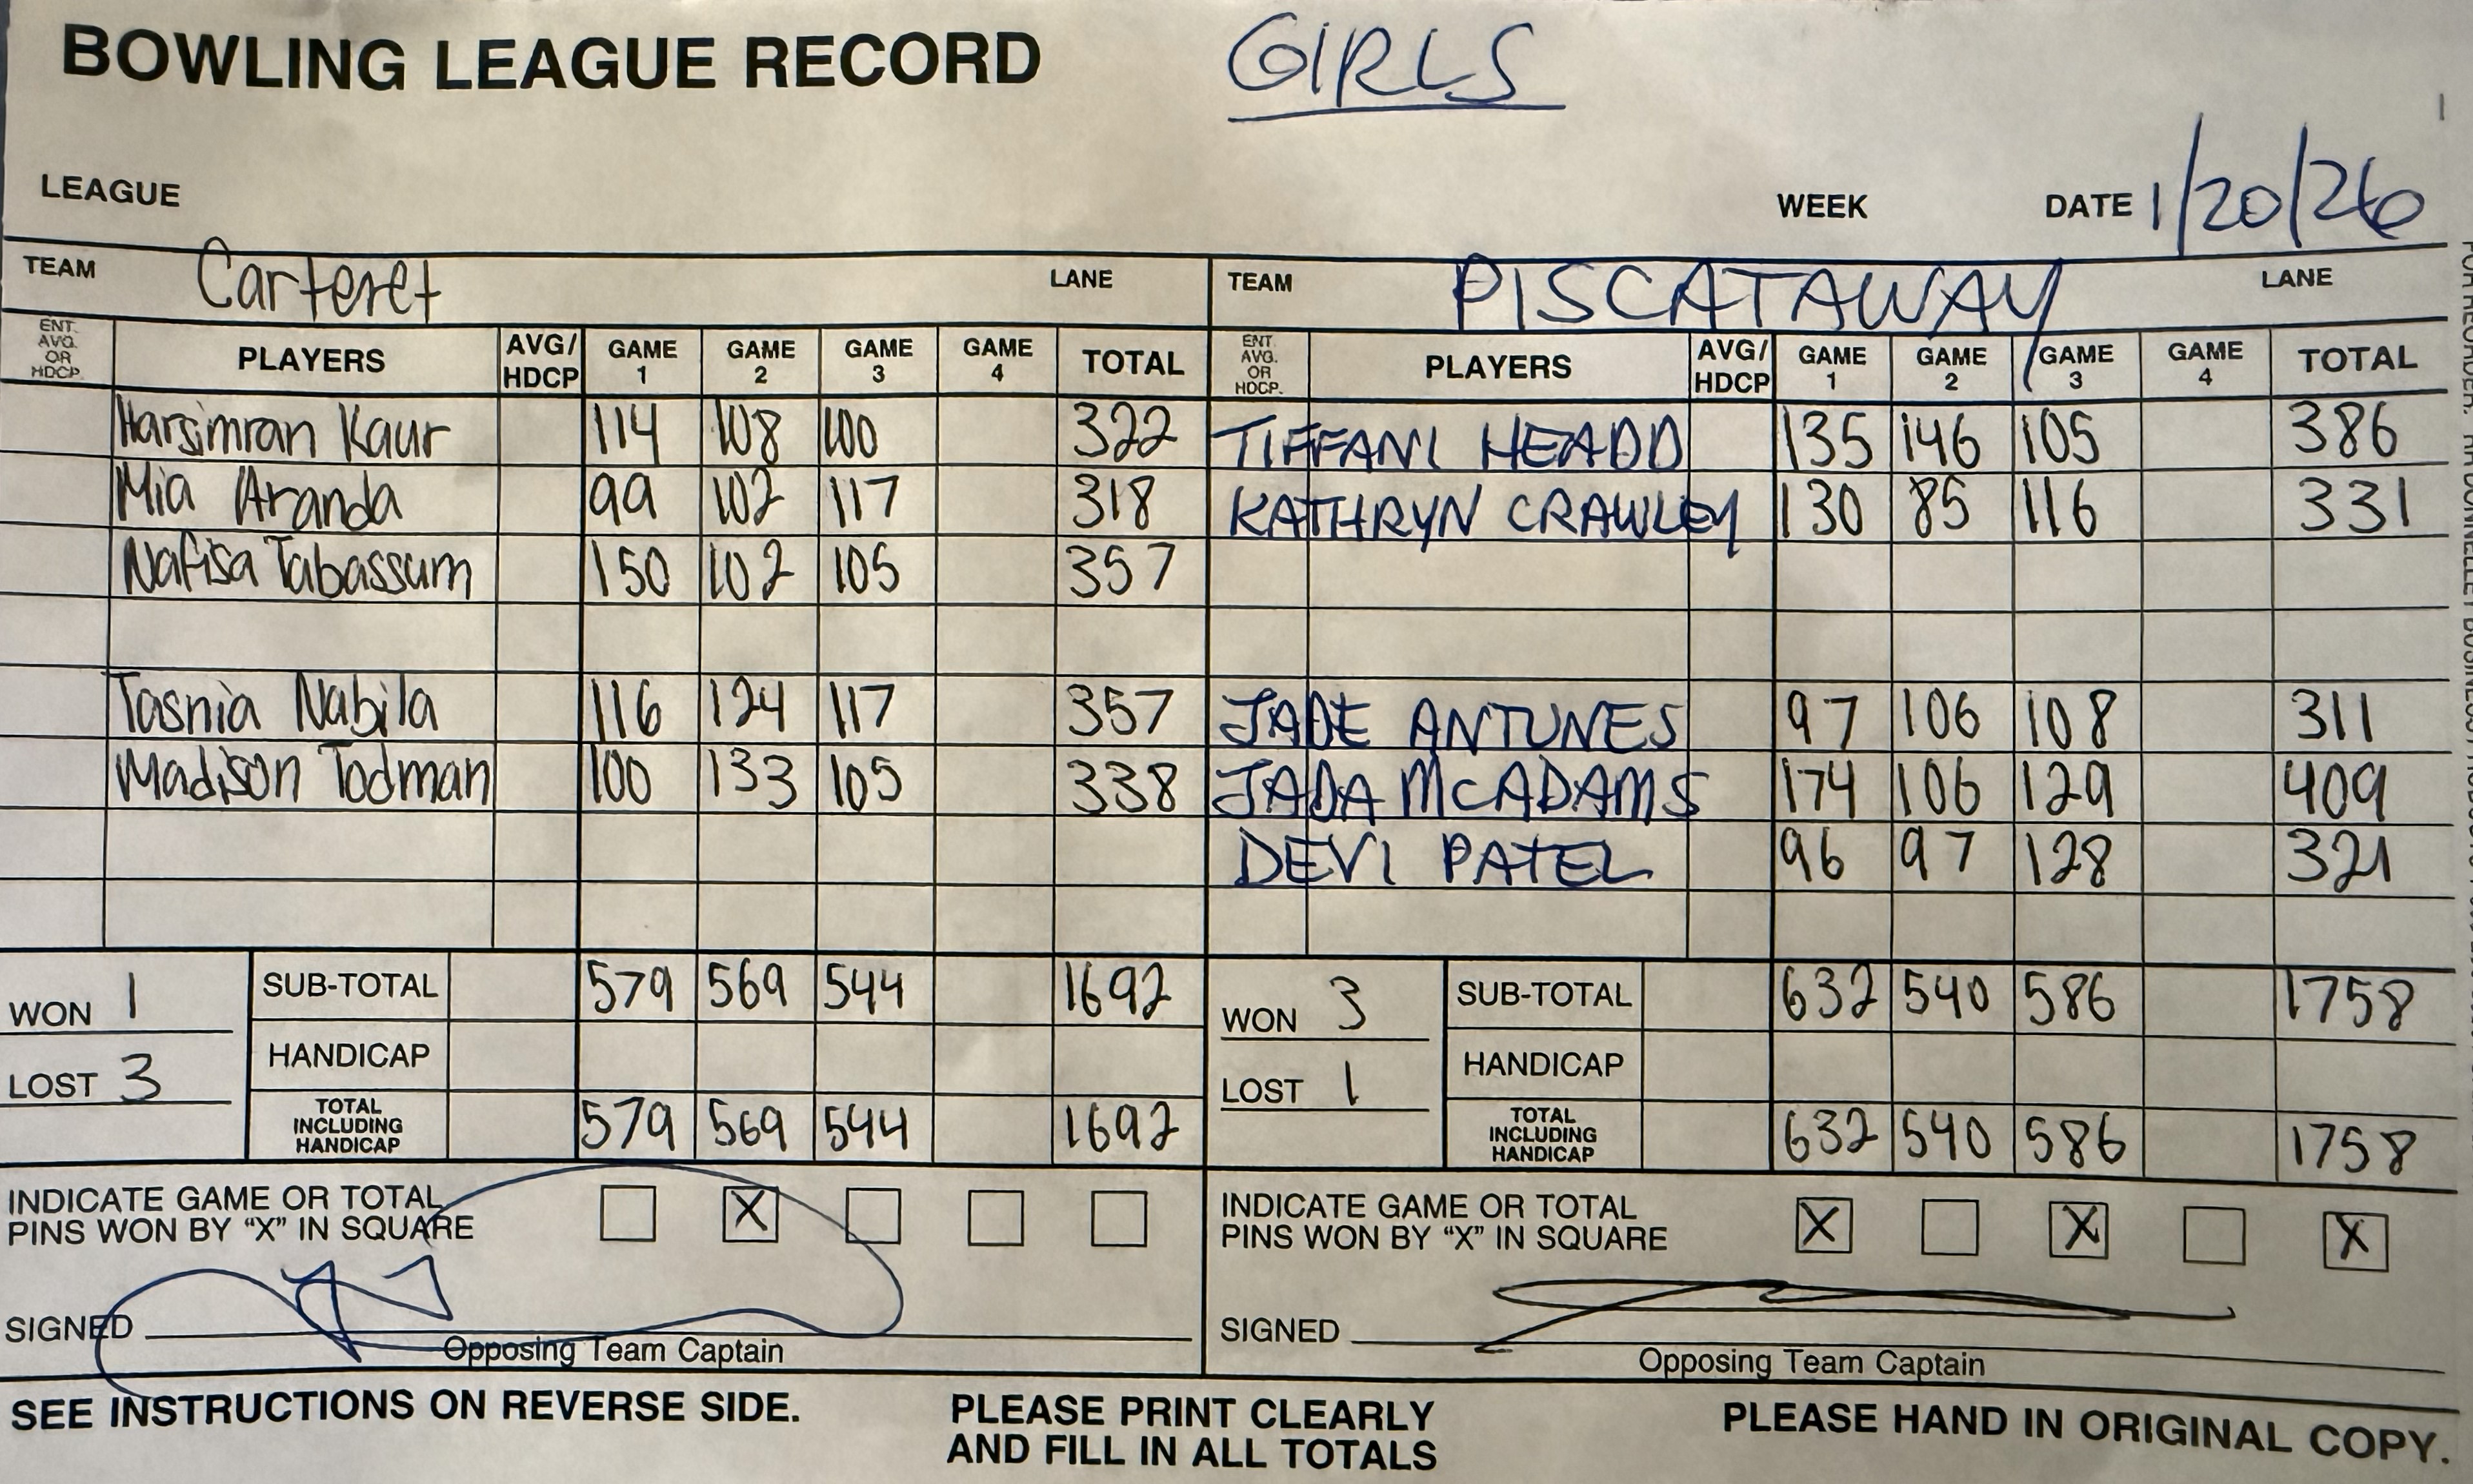 BOWLING LEAGUE RECORD GIRLS
LEAGUE WEEK DATE 1/20/26
TEAM Carteret LANE TEAM PISCATAWAY LANE
ENT. AVG. OR HDCP. PLAYERS AVG/HDCP GAME 1 GAME 2 GAME 3 GAME 4 TOTAL ENT. AVG. OR HDCP. PLAYERS AVG/HDCP GAME 1 GAME 2 GAME 3 GAME 4 TOTAL
Harsimran Kaur 114 108 100 322 TIFFANI HEADD 135 146 105 386
Mia Aranda 99 102 117 318 KATHRYN CRAWLEY 130 85 116 331
Nafisa Tabassum 150 102 105 357
Tasnia Nabila 116 124 117 357 JADE ANTUNES 97 106 108 311
Madison Todman 100 133 105 338 JADA McADAMS 174 106 129 409
DEVI PATEL 96 97 128 321
WON 1 SUB-TOTAL 579 569 544 1692 WON 3 SUB-TOTAL 632 540 586 1758
LOST 3 HANDICAP LOST 1 HANDICAP
TOTAL INCLUDING HANDICAP 579 569 544 1692 TOTAL INCLUDING HANDICAP 632 540 586 1758
INDICATE GAME OR TOTAL INDICATE GAME OR TOTAL
PINS WON BY "X" IN SQUARE X PINS WON BY "X" IN SQUARE X X X
SIGNED SIGNED
Opposing Team Captain Opposing Team Captain
SEE INSTRUCTIONS ON REVERSE SIDE. PLEASE PRINT CLEARLY PLEASE HAND IN ORIGINAL COPY.
AND FILL IN ALL TOTALS